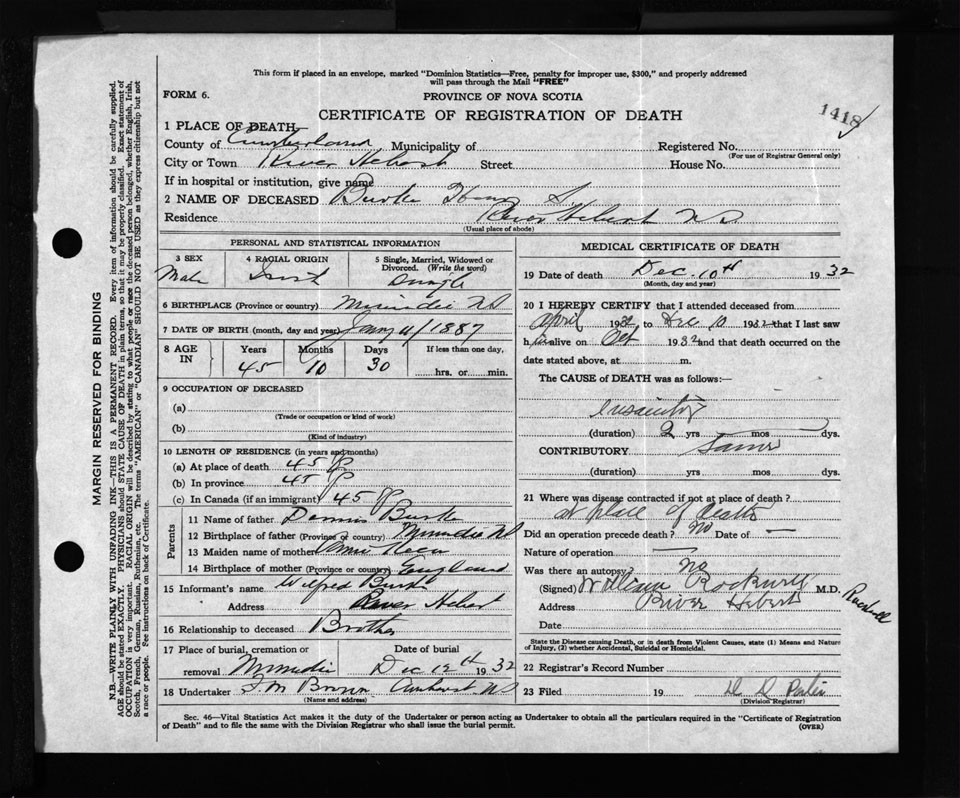 This form if placed in an envelope, marked "Dominion Statistics—Free, penalty for improper use, $300," and properly addressed
will pass through the Mail "FREE"
FORM 6.
PROVINCE OF NOVA SCOTIA
CERTIFICATE OF REGISTRATION OF DEATH
1418
1 PLACE OF DEATH
County of Cumberland Municipality of Registered No.
(For use of Registrar General only)
City or Town River Hebert Street House No.
If in hospital or institution, give name
2 NAME OF DECEASED Burke
Residence River Hebert NS
(Usual place of abode)
PERSONAL AND STATISTICAL INFORMATION
3 SEX 4 RACIAL ORIGIN 5 Single, Married, Widowed or
Divorced. (Write the word)
Male Irish Single
6 BIRTHPLACE (Province or country) Minudie NS
7 DATE OF BIRTH (month, day and year) 1887
8 AGE IN Years Months Days If less than one day,
45 10 30 hrs. or min.
9 OCCUPATION OF DECEASED
(a)
(Trade or occupation or kind of work)
(b)
(Kind of industry)
10 LENGTH OF RESIDENCE (in years and months)
(a) At place of death 45
(b) In province 45
(c) In Canada (if an immigrant) 45
Parents
11 Name of father Dennis Burke
12 Birthplace of father (Province or country) Minudie NS
13 Maiden name of mother
14 Birthplace of mother (Province or country) England
15 Informant's name Wilfred Burke
Address River Hebert
16 Relationship to deceased Brother
17 Place of burial, cremation or Date of burial
removal Minudie Dec 12th 1932
18 Undertaker Brown Amherst NS
(Name and address)
MEDICAL CERTIFICATE OF DEATH
19 Date of death Dec. 10th 1932
(Month, day and year)
20 I HEREBY CERTIFY that I attended deceased from
April 1932 to Dec 10 1932 that I last saw
him alive on Oct 1932 and that death occurred on the
date stated above, at m.
The CAUSE of DEATH was as follows:—
insanity
(duration) 2 yrs mos dys.
CONTRIBUTORY Same
(duration) yrs mos dys.
21 Where was disease contracted if not at place of death?
at place of death
Did an operation precede death? No Date of —
Nature of operation —
Was there an autopsy? no
(Signed) William Rockwell M.D.
Rockwell
Address River Hebert
Date
State the Disease causing Death, or in death from Violent Causes, state (1) Means and Nature
of Injury, (2) whether Accidental, Suicidal or Homicidal.
22 Registrar's Record Number
23 Filed 19
(Division Registrar)
Sec. 46—Vital Statistics Act makes it the duty of the Undertaker or person acting as Undertaker to obtain all the particulars required in the "Certificate of Registration
of Death" and to file the same with the Division Registrar who shall issue the burial permit.
(OVER)
MARGIN RESERVED FOR BINDING
N.B.—WRITE PLAINLY WITH UNFADING INK—THIS IS A PERMANENT RECORD. Every item of information should be carefully supplied.
AGE should be stated EXACTLY. PHYSICIANS should STATE CAUSE OF DEATH in plain terms, so that it may be properly classified. Exact statement of
OCCUPATION is very important. RACIAL ORIGIN will be described by stating to what people or race the deceased person belonged, whether English, Irish,
Scotch, French, German, Russian, Ruthenian, etc. The terms "AMERICAN" or "CANADIAN" SHOULD NOT BE USED as they express citizenship but not
a race or people. See instructions on back of Certificate.